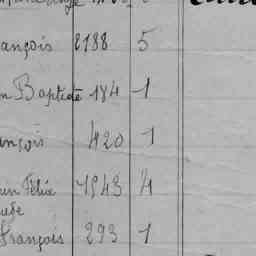 ançois 2188 5
n Baptiste 184 1
ançois 420 1
Félix 1943 4
François 293 1